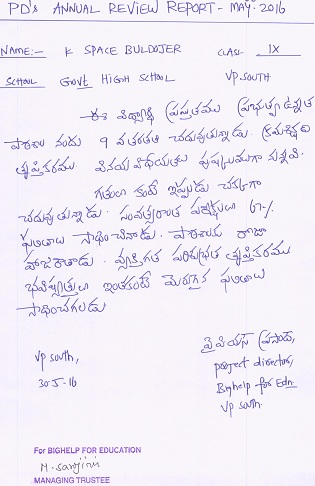 PD's ANNUAL REVIEW REPORT - MAY. 2016
NAME:- K SPACE BULDOJER CLASS- IX
SCHOOL Govt HIGH SCHOOL VP. SOUTH
ఈ విద్యార్థి ప్రస్తుతము ప్రభుత్వ ఉన్నత
పాఠశాల నందు 9 వ తరగతి చదువుతున్నాడు. క్రమశిక్షణ
తృప్తికరము. వినయ విధేయతలు పుష్కలముగా ఉన్నవి.
గతంలో కంటే ఇప్పుడు చక్కగా
చదువుతున్నాడు. సంవత్సరాంత పరీక్షలలో 67%
ఫలితాలు సాధించినాడు. పాఠశాలకు రోజూ
హాజరౌతాడు. వ్యక్తిగత పరిశుభ్రత తృప్తికరము
భవిష్యత్తులో ఇంతకంటే మెరుగైన ఫలితాలు
సాధించగలడు
VP South,
30-5-16
పైపియస్ ప్రసాద్,
project director,
Bighelp for Edn
VP South
For BIGHELP FOR EDUCATION
M. Sarojini
MANAGING TRUSTEE